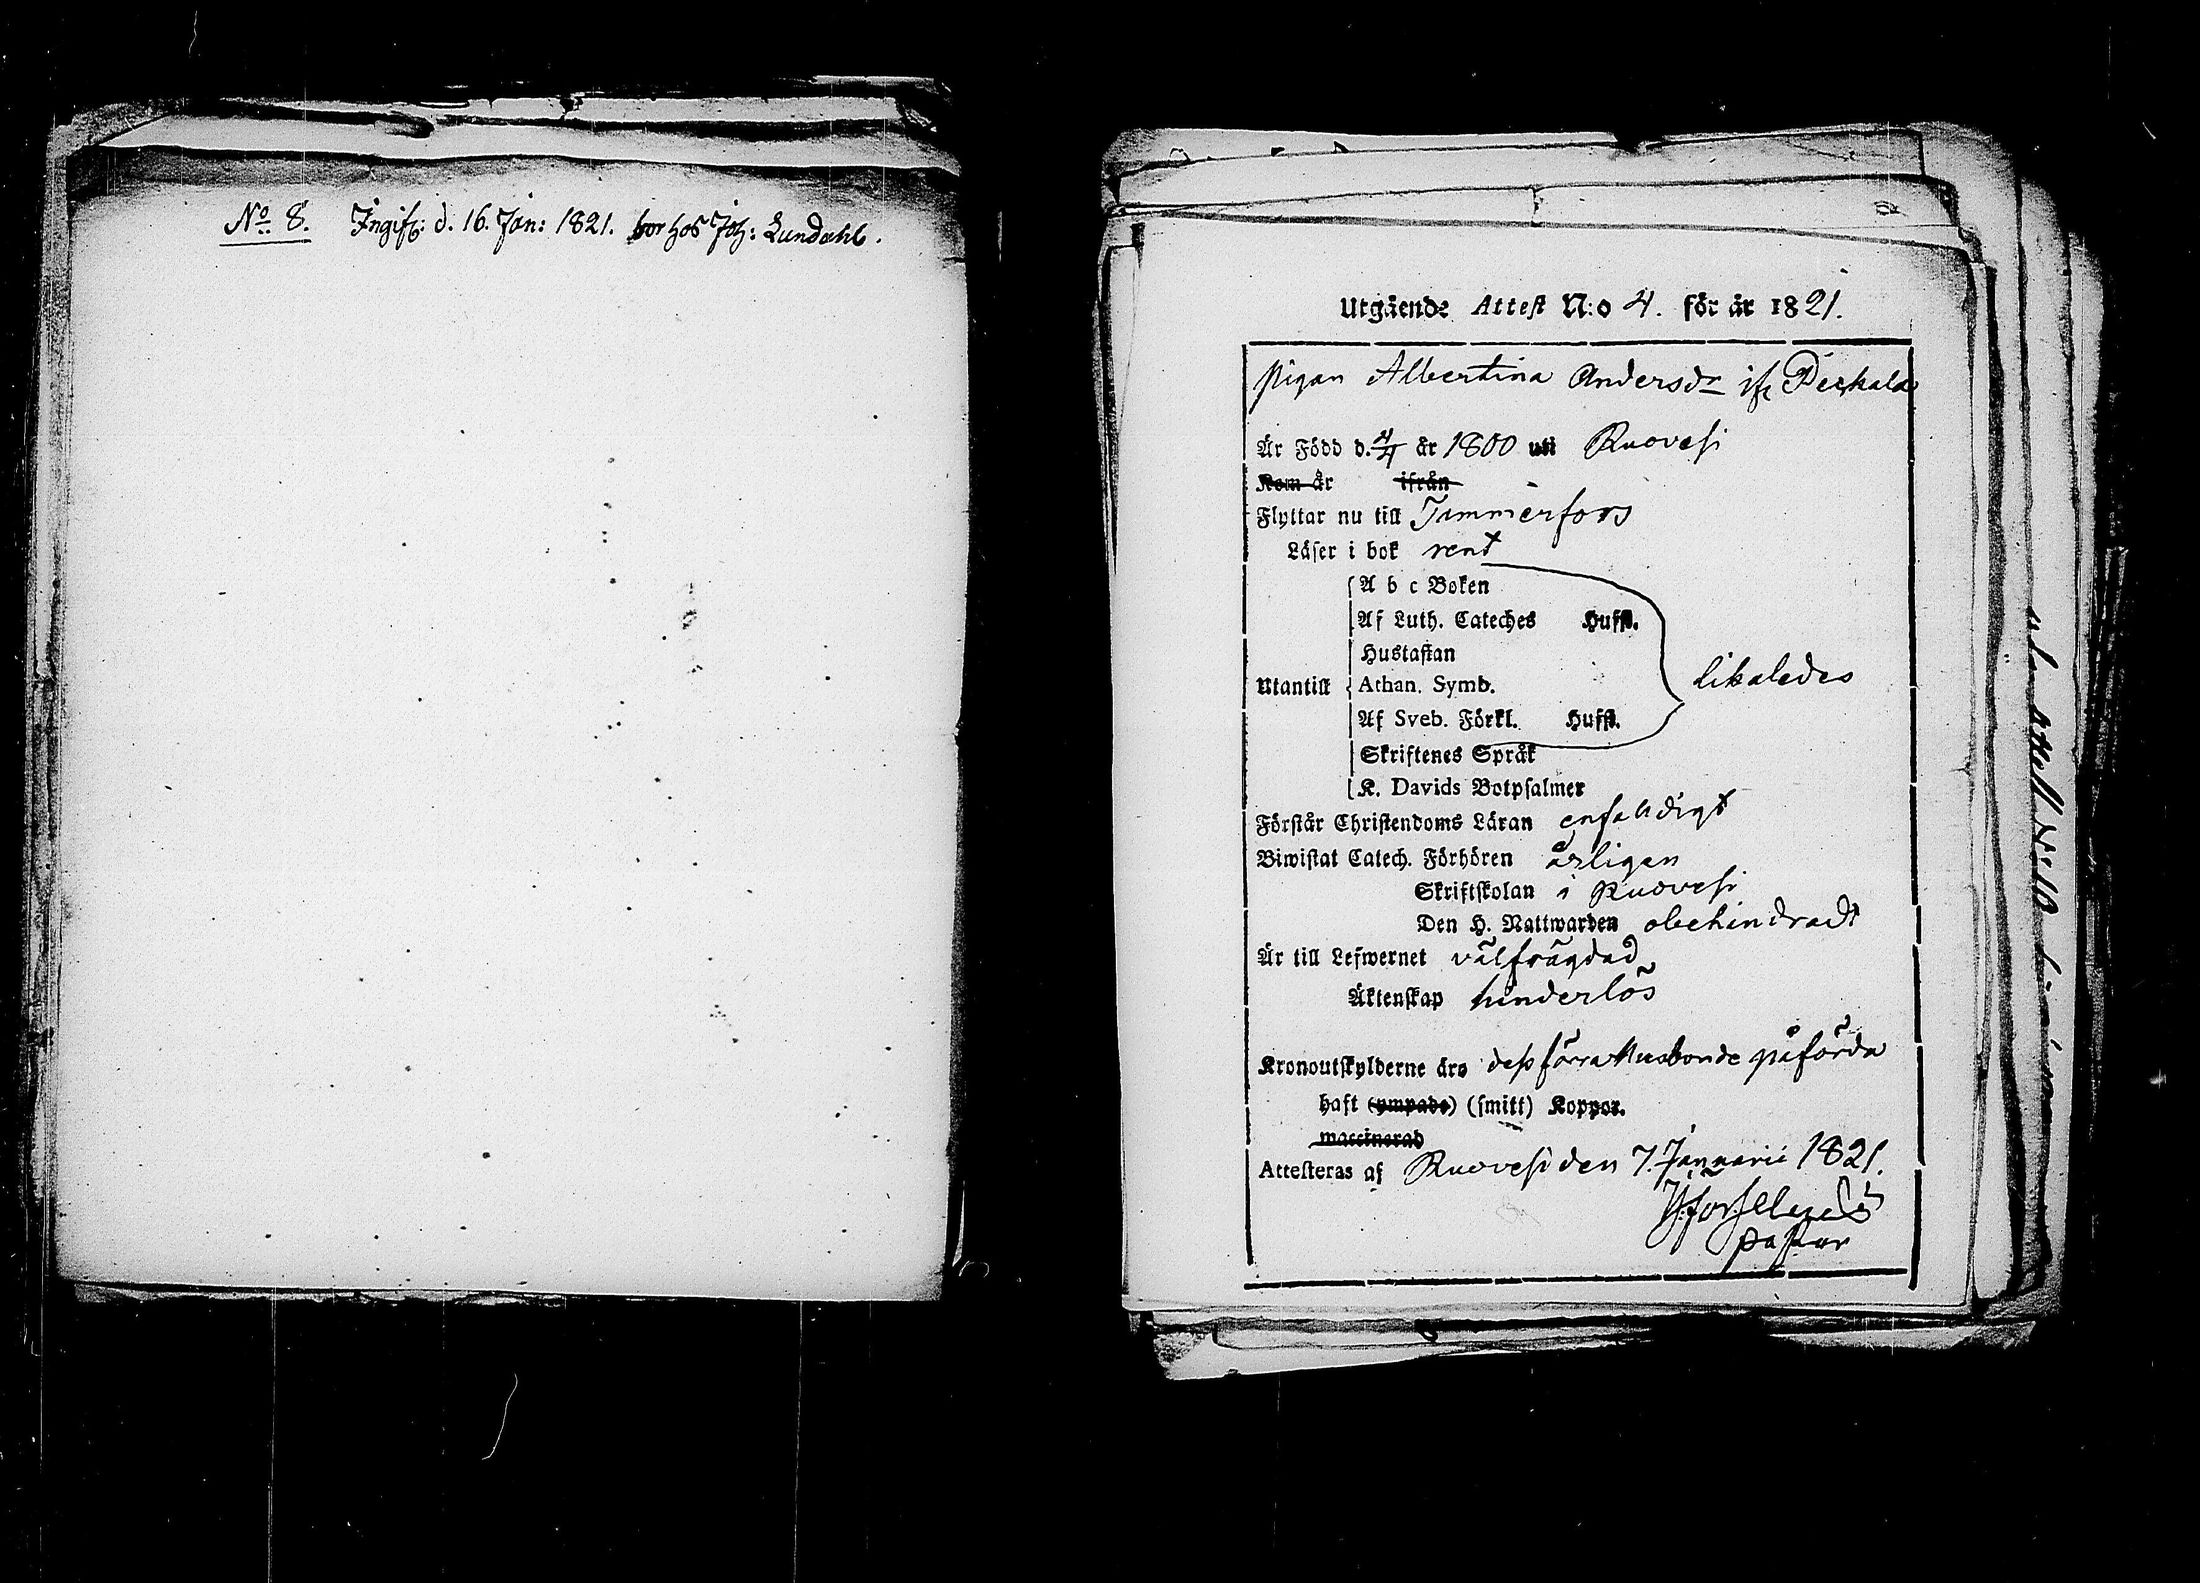 No 8. Ingifv: d. 16. Jan: 1821. bor hos Joh: Lundahl.
Utgående Attest N:o 4. för år 1821.
pigan Albertina Andersdr ifr Peskala
Är Född d. 4/4 år 1800 uti Ruovesi
Kom år ifrån
Flyttar nu till Tammerfors
Läser i bok rent
A b c Boken
Af Luth. Cateches Hufst.
Hustaflan
Utantill Athan. Symb. likaledes
Af Sveb. Förkl. Hufst.
Skriftenes Språk
K. Davids Botpsalmer
Förstår Christendoms Läran enfaldigt
Biwistat Catech. Förhören årligen
Skriftskolan i Ruovesi
Den H. Nattwarden obehindradt
Är till Lefwernet välfrägdad
Äktenskap hinderlös
Kronoutskylderne äro dess förra Husbonde påförda
haft (ympade) (smitt) Koppor.
waccinerad
Attesteras af Ruovesi den 7. Januarii 1821.
pastor